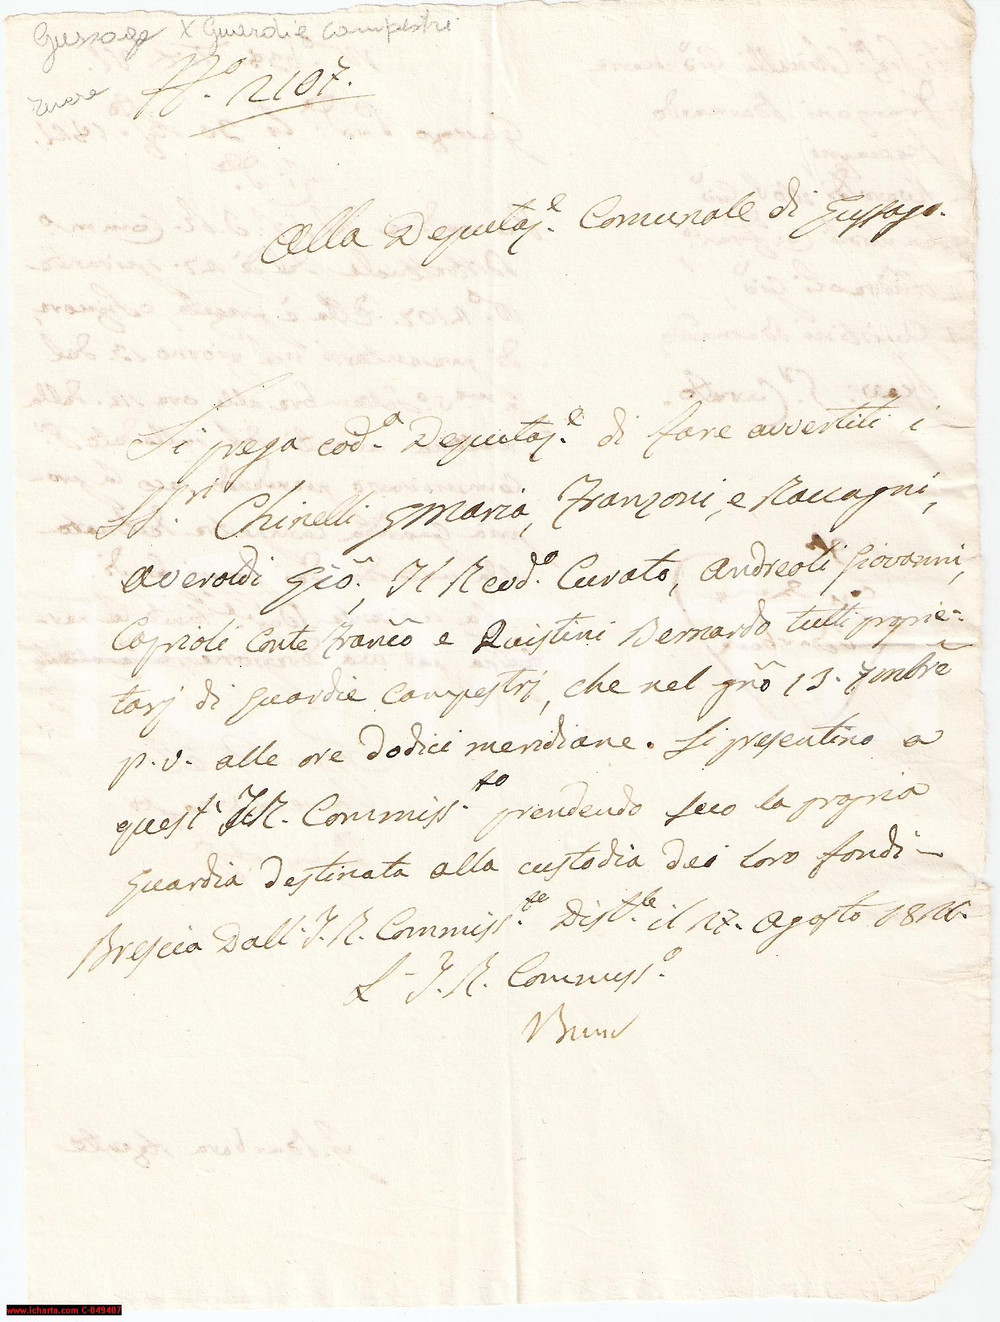 Gussago X Guardie campestri
N.° 2107.
Alla Deputaz.e Comunale di Gussago.
Si prega cod.a Deputaz.e di fare avvertiti i
SS.ri Chinelli GMaria, Franzoni, e Raccagni,
Averoldi Gio., Il Revd.o Curato, Andreoli Giovanni,
Caprioli Conte Franc.o e Quistini Bernardo tutti proprie=
tarj di guardie campestrj, che nel gno 13. 7mbre
p.v. alle ore dodici meridiane. Si presentino a
quest' I.R. Commiss.to prendendo seco la propria
guardia destinata alla custodia dei loro fondi –
Brescia Dall' I.R. Commiss.to Dist.le il 27. Agosto 1816.
L' I.R. Commiss.o
www.icharta.com C-049407